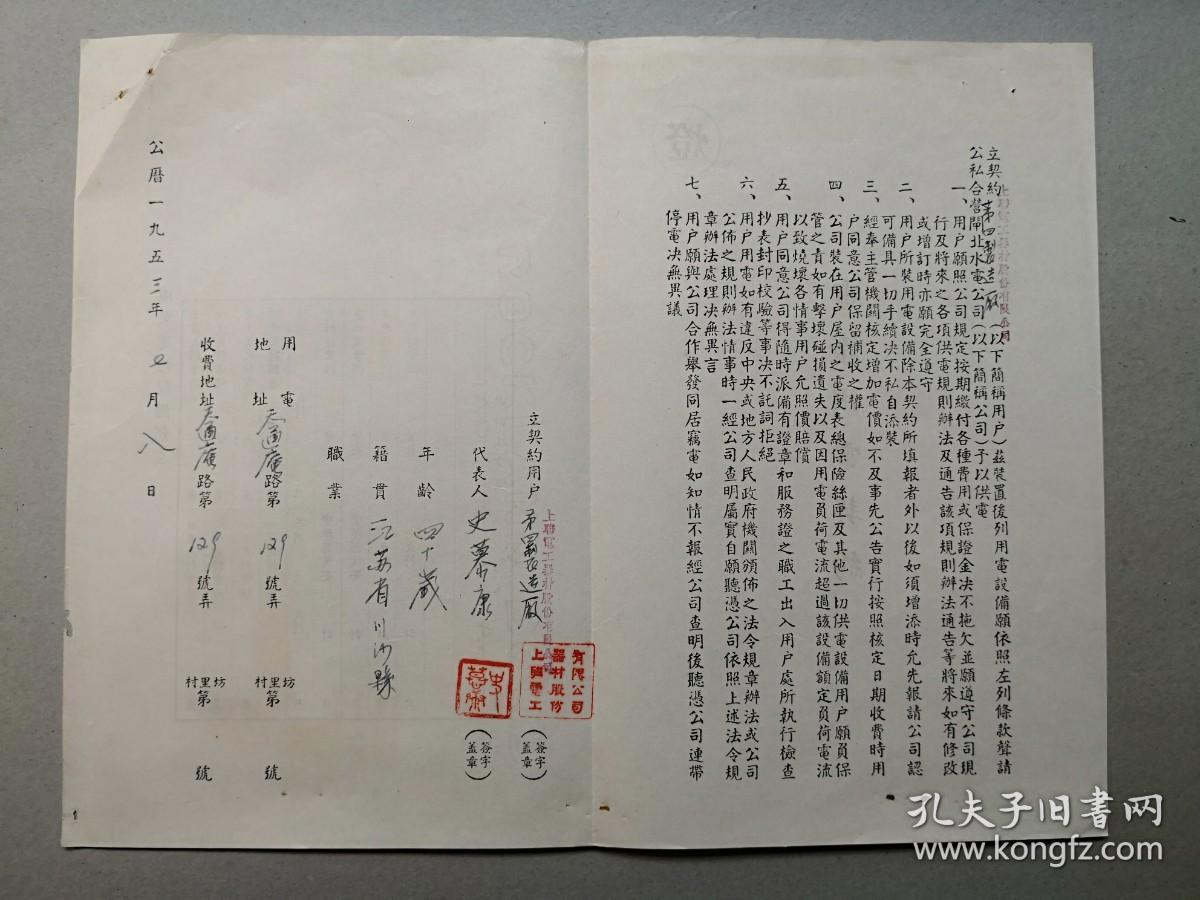 上聯電工器材股份有限公司
立契約第四製造廠(以下簡稱用户)茲裝置後列用電設備願依照左列條款聲請
公私合營閘北水電公司(以下簡稱公司)予以供電
一、用户願照公司規定按期繳付各種費用或保證金决不拖欠並願遵守公司現
行及將來之各項供電規則辦法及通告該項規則辦法通告等將來如有修改
或增訂時亦願完全遵守
二、用户所裝用電設備除本契約所填報者外以後如須增添時允先報請公司認
可備具一切手續决不私自添裝
三、經奉主管機關核定增加電價如不及事先公告實行按照核定日期收費時用
户同意公司保留補收之權
四、公司裝在用户屋内之電度表總保險絲匣及其他一切供電設備用户願負保
管之責如有擊壞碰損遺失以及因用電負荷電流超過該設備額定負荷電流
以致燒壞各情事用户允照價賠償
五、用户同意公司得隨時派備有證章和服務證之職工出入用户處所執行檢查
抄表封印校驗等事决不託詞拒絕
六、用户用電如有違反中央或地方人民政府機關頒佈之法令規章辦法或公司
公佈之規則辦法情事時一經公司查明屬實自願聽憑公司依照上述法令規
章辦法處理决無異言
七、用户願與公司合作舉發同居竊電如知情不報經公司查明後聽憑公司連帶
停電决無異議
上聯電工器材股份有限公司
立契約用户 第四製造廠 (簽字蓋章)
上聯電工器材股份有限公司
代表人 史慕康 (簽字蓋章)
年齡 四十歲
籍貫 江苏省川沙縣
職業
用電地址 天通庵路第 129 號弄 村里坊第 號
收費地址 天通庵路第 129 號弄 村里坊第 號
公曆一九五三年 七月 八 日
孔夫子旧书网
www.kongfz.com